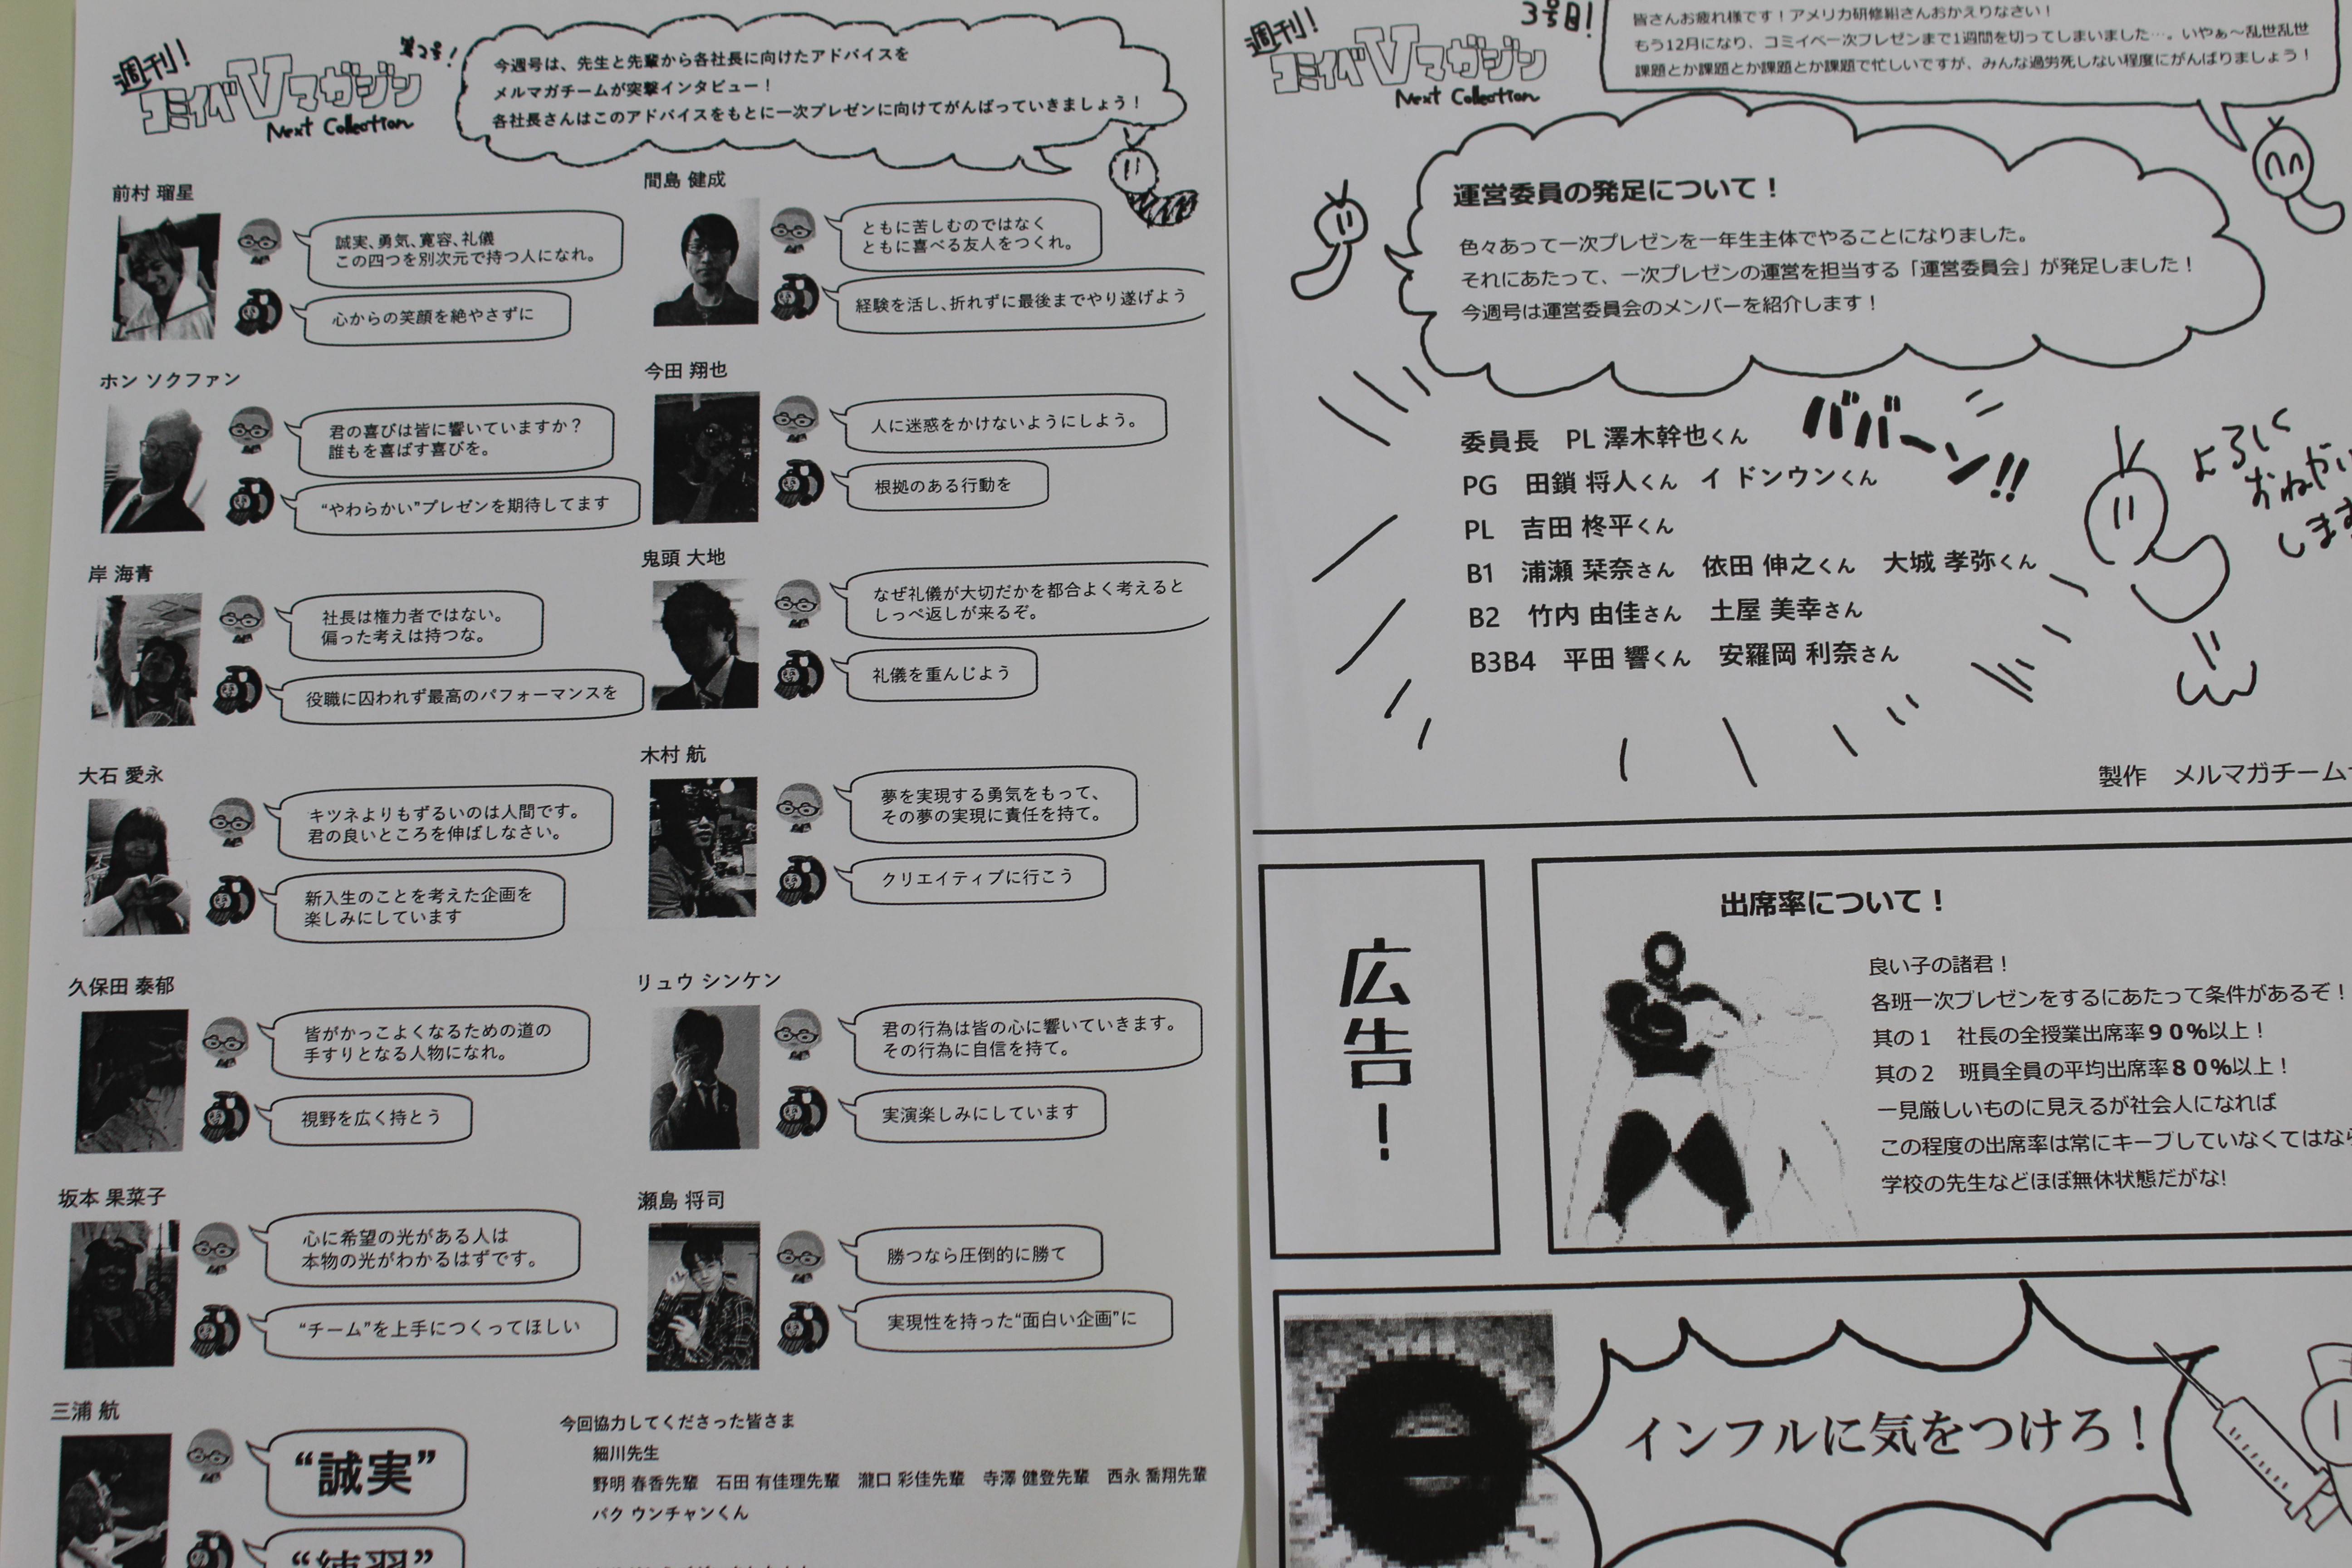 週刊！
コミイベVマガジン
Next Collection
第2号！
今週号は、先生と先輩から各社長に向けたアドバイスを
メルマガチームが突撃インタビュー！
各社長さんはこのアドバイスをもとに一次プレゼンに向けてがんばっていきましょう！
前村 瑠星
誠実、勇気、寛容、礼儀
この四つを別次元で持つ人になれ。
心からの笑顔を絶やさずに
ホン ソクファン
君の喜びは皆に響いていますか？
誰もを喜ばす喜びを。
“やわらかい”プレゼンを期待してます
岸 海青
社長は権力者ではない。
偏った考えは持つな。
役職に囚われず最高のパフォーマンスを
大石 愛永
キツネよりもずるいのは人間です。
君の良いところを伸ばしなさい。
新入生のことを考えた企画を
楽しみにしています
久保田 泰郁
皆がかっこよくなるための道の
手すりとなる人物になれ。
視野を広く持とう
坂本 果菜子
心に希望の光がある人は
本物の光がわかるはずです。
“チーム”を上手につくってほしい
三浦 航
“誠実”
“練習”
間島 健成
ともに苦しむのではなく
ともに喜べる友人をつくれ。
経験を活し、折れずに最後までやり遂げよう
今田 翔也
人に迷惑をかけないようにしよう。
根拠のある行動を
鬼頭 大地
なぜ礼儀が大切だかを都合よく考えると
しっぺ返しが来るぞ。
礼儀を重んじよう
木村 航
夢を実現する勇気をもって、
その夢の実現に責任を持て。
クリエイティブに行こう
リュウ シンケン
君の行為は皆の心に響いていきます。
その行為に自信を持て。
実演楽しみにしています
瀬島 将司
勝つなら圧倒的に勝て
実現性を持った“面白い企画”に
今回協力してくださった皆さま
細川先生
野明 春香先輩 石田 有佳理先輩 瀧口 彩佳先輩 寺澤 健登先輩 西永 喬翔先輩
パク ウンチャンくん
週刊！
コミイベVマガジン
Next Collection
3号目！
皆さんお疲れ様です！アメリカ研修組さんおかえりなさい！
もう12月になり、コミイベ一次プレゼンまで1週間を切ってしまいました…。いやぁ～乱世乱世
課題とか課題とか課題とか課題で忙しいですが、みんな過労死しない程度にがんばりましょう！
運営委員の発足について！
色々あって一次プレゼンを一年生主体でやることになりました。
それにあたって、一次プレゼンの運営を担当する「運営委員会」が発足しました！
今週号は運営委員会のメンバーを紹介します！
ババーン!!
委員長 PL 澤木幹也くん
PG 田鎖 将人くん イ ドンウンくん
PL 吉田 柊平くん
B1 浦瀬 栞奈さん 依田 伸之くん 大城 孝弥くん
B2 竹内 由佳さん 土屋 美幸さん
B3B4 平田 響くん 安羅岡 利奈さん
よろしく
おねがい
します
製作 メルマガチーム
広告！
出席率について！
良い子の諸君！
各班一次プレゼンをするにあたって条件があるぞ！
其の１ 社長の全授業出席率９０％以上！
其の２ 班員全員の平均出席率８０％以上！
一見厳しいものに見えるが社会人になれば
この程度の出席率は常にキープしていなくてはなら
学校の先生などほぼ無休状態だがな!
インフルに気をつけろ！